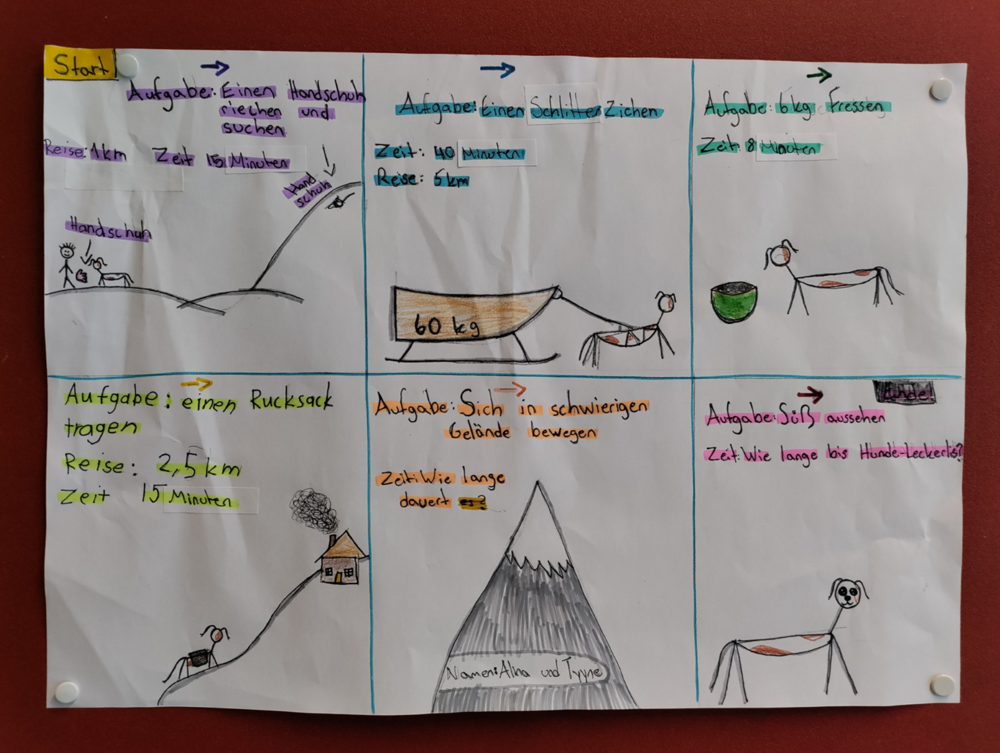 Start
Aufgabe: Einen Handschuh
riechen und
suchen
Reise: 1km Zeit 15 Minuten
Hand
schuh
Handschuh
Aufgabe: Einen Schlitten Ziehen
Zeit: 40 Minuten
Reise: 5km
60 kg
Aufgabe: 6kg Fressen
Zeit: 8 Minuten
Aufgabe: einen Rucksack
tragen
Reise: 2,5km
Zeit 15 Minuten
Aufgabe: Sich in schwierigen
Gelände bewegen
Zeit: Wie lange
dauert es?
Namen: Alna und Tyyne
Ende!
Aufgabe: Süß aussehen
Zeit: Wie lange bis Hunde-Leckerlis?